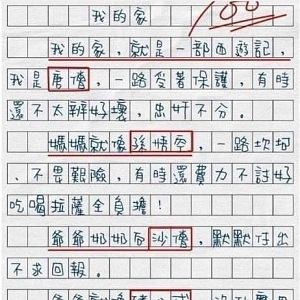 我的家
100
我的家，就是一部西遊記，
我是唐僧，一路受著保護，有時
還不太辨好壞，忠奸不分。
媽媽就像孫悟空，一路坎坷
、不畏艱險，有時還費力不討好
吃喝拉薩全負擔！
爺爺奶奶向沙僧，默默付出
不求回報。
爸爸就